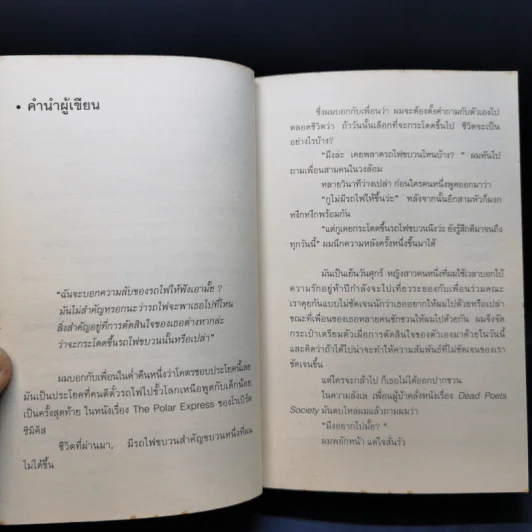 • คำนำผู้เขียน
"ฉันจะบอกความลับของรถไฟให้ฟังเอามั้ย ?
มันไม่สำคัญหรอกนะว่ารถไฟจะพาเธอไปที่ไหน
สิ่งสำคัญอยู่ที่การตัดสินใจของเธอต่างหากล่ะ
ว่าจะกระโดดขึ้นรถไฟขบวนนั้นหรือเปล่า"
ผมบอกกับเพื่อนในค่ำคืนหนึ่งว่าโคตรชอบประโยคนี้เลย
มันเป็นประโยคที่คนตีตั๋วรถไฟไปขั้วโลกเหนือพูดกับเด็กน้อย
เป็นครั้งสุดท้าย ในหนังเรื่อง The Polar Express ของโรเบิร์ต
ซิมิคิส
ชีวิตที่ผ่านมา, มีรถไฟขบวนสำคัญขบวนหนึ่งที่ผม
ไม่ได้ขึ้น
ซึ่งผมบอกกับเพื่อนว่า ผมจะต้องตั้งคำถามกับตัวเองไป
ตลอดชีวิตว่า ถ้าวันนั้นเลือกที่จะกระโดดขึ้นไป ชีวิตจะเป็น
อย่างไรบ้าง?
"มึงล่ะ เคยพลาดรถไฟขบวนไหนบ้าง? " ผมหันไป
ถามเพื่อนสามคนในวงล้อม
หลายวินาทีที่ว่างเปล่า ก่อนใครคนหนึ่งพูดออกมาว่า
"กูไม่มีรถไฟให้ขึ้นว่ะ" หลังจากนั้นอีกสามหัวก็ผงก
หงึกหงักพร้อมกัน
"แต่กูเคยกระโดดขึ้นรถไฟขบวนนึงว่ะ ยังรู้สึกดีมาจนถึง
ทุกวันนี้" ผมนึกความหลังครั้งหนึ่งขึ้นมาได้
มันเป็นเย็นวันศุกร์ หญิงสาวคนหนึ่งที่ผมใช้เวลาบอกไม้
ความรักอยู่ห้าปีกำลังจะไปเที่ยวระยองกับเพื่อนร่วมคณะ
เราคุยกันแบบไม่ชัดเจนนักว่าเธออยากให้ผมไปด้วยหรือเปล่า
ขณะที่เพื่อนของเธอหลายคนชักชวนให้ผมไปด้วยกัน ผมจึงจัด
กระเป๋าเตรียมตัวเผื่อการตัดสินใจของตัวเองมาด้วยในวันนี้
และคิดว่าถ้าได้ไปน่าจะทำให้ความสัมพันธ์ที่ไม่ชัดเจนของเรา
ชัดเจนขึ้น
แต่ใครจะกล้าไป ก็เธอไม่ได้ออกปากชวน
ในความลังเล เพื่อนผู้บ้าคลั่งหนังเรื่อง Dead Poets
Society มันตบไหล่ผมแล้วถามผมว่า
"มึงอยากไปมั้ย? "
ผมพยักหน้า แต่ใจสั่นรัว